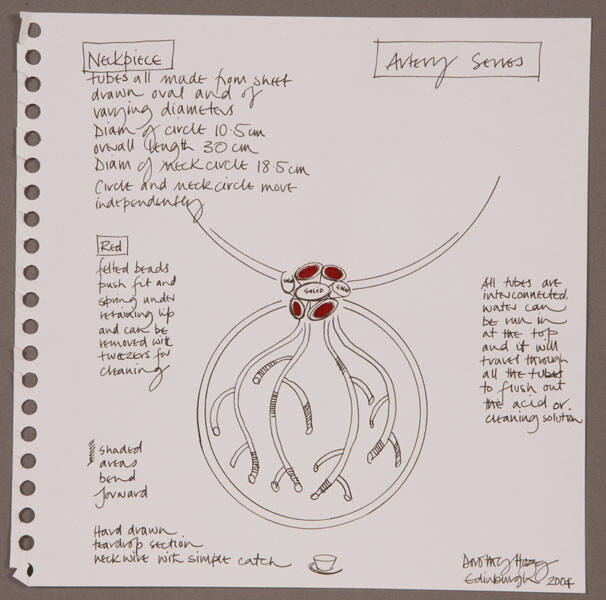 Neckpiece
tubes all made from sheet
drawn oval and of
varying diameters
Diam of circle 10.5cm
overall length 30cm
Diam of neck circle 18.5cm
Circle and neck circle move
independently
Artery Series
Red
felted beads
push fit and
spring under
retaining lip
and can be
removed with
tweezers for
cleaning
solid
All tubes are
interconnected,
water can
be run in
at the top
and it will
travel through
all the tubes
to flush out
the acid or
cleaning solution
shaded
areas
bend
forward
Hard drawn
teardrop section
neckwire with simple catch
Dorothy Hogg
Edinburgh 2004